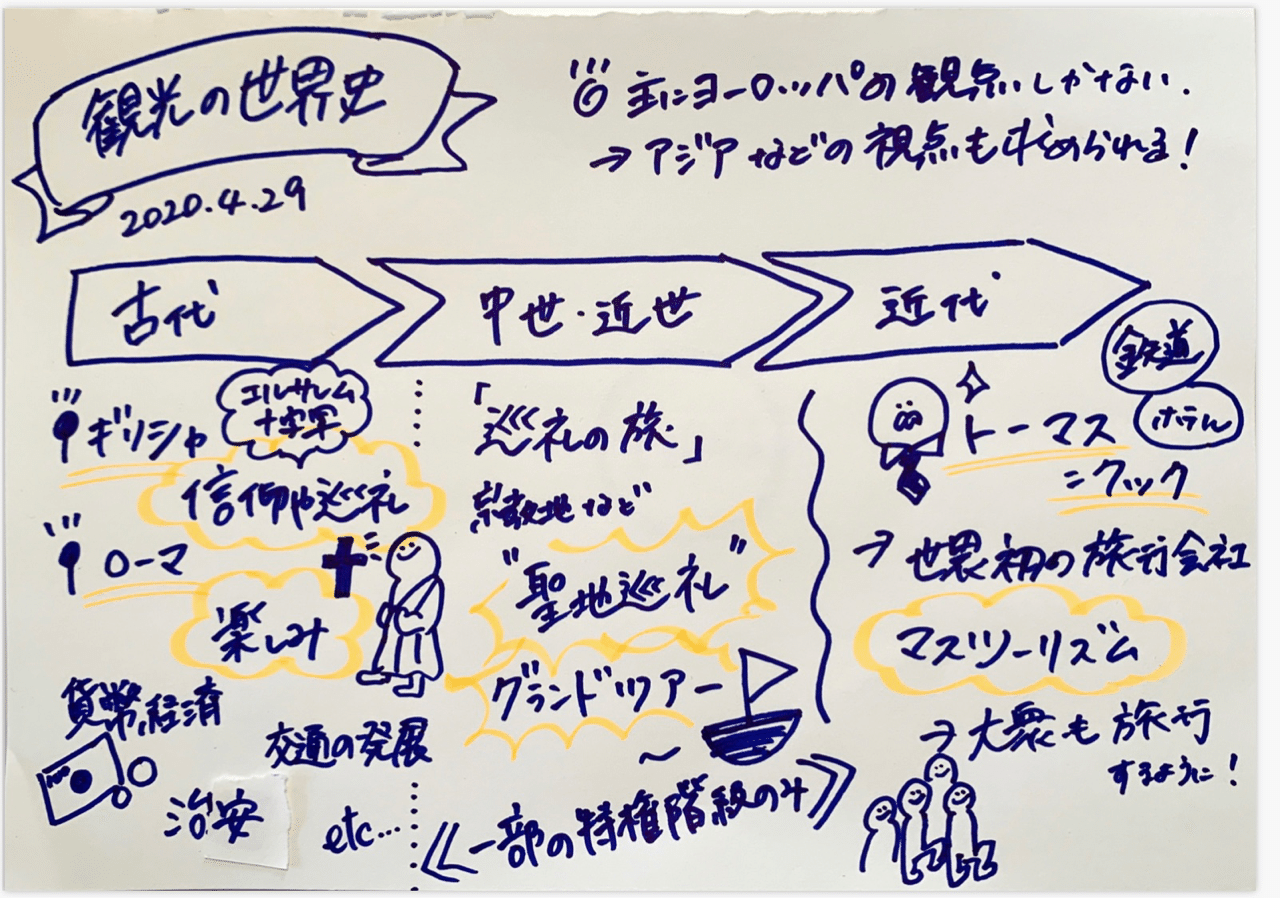 観光の世界史
2020.4.29
◎ 主にヨーロッパの観点しかない.
→ アジアなどの視点も求められる!
古代
中世・近世
近代
ギリシャ
エルサレム
十字軍
信仰や巡礼
ローマ
楽しみ
貨幣経済
100
治安
交通の発展
etc...
「巡礼の旅」
宗教地など
"聖地巡礼"
グランドツアー
〜
《一部の特権階級のみ》
鉄道
ホテル
トーマス
=クック
→ 世界初の旅行会社
マスツーリズム
→ 大衆も旅行
するように!